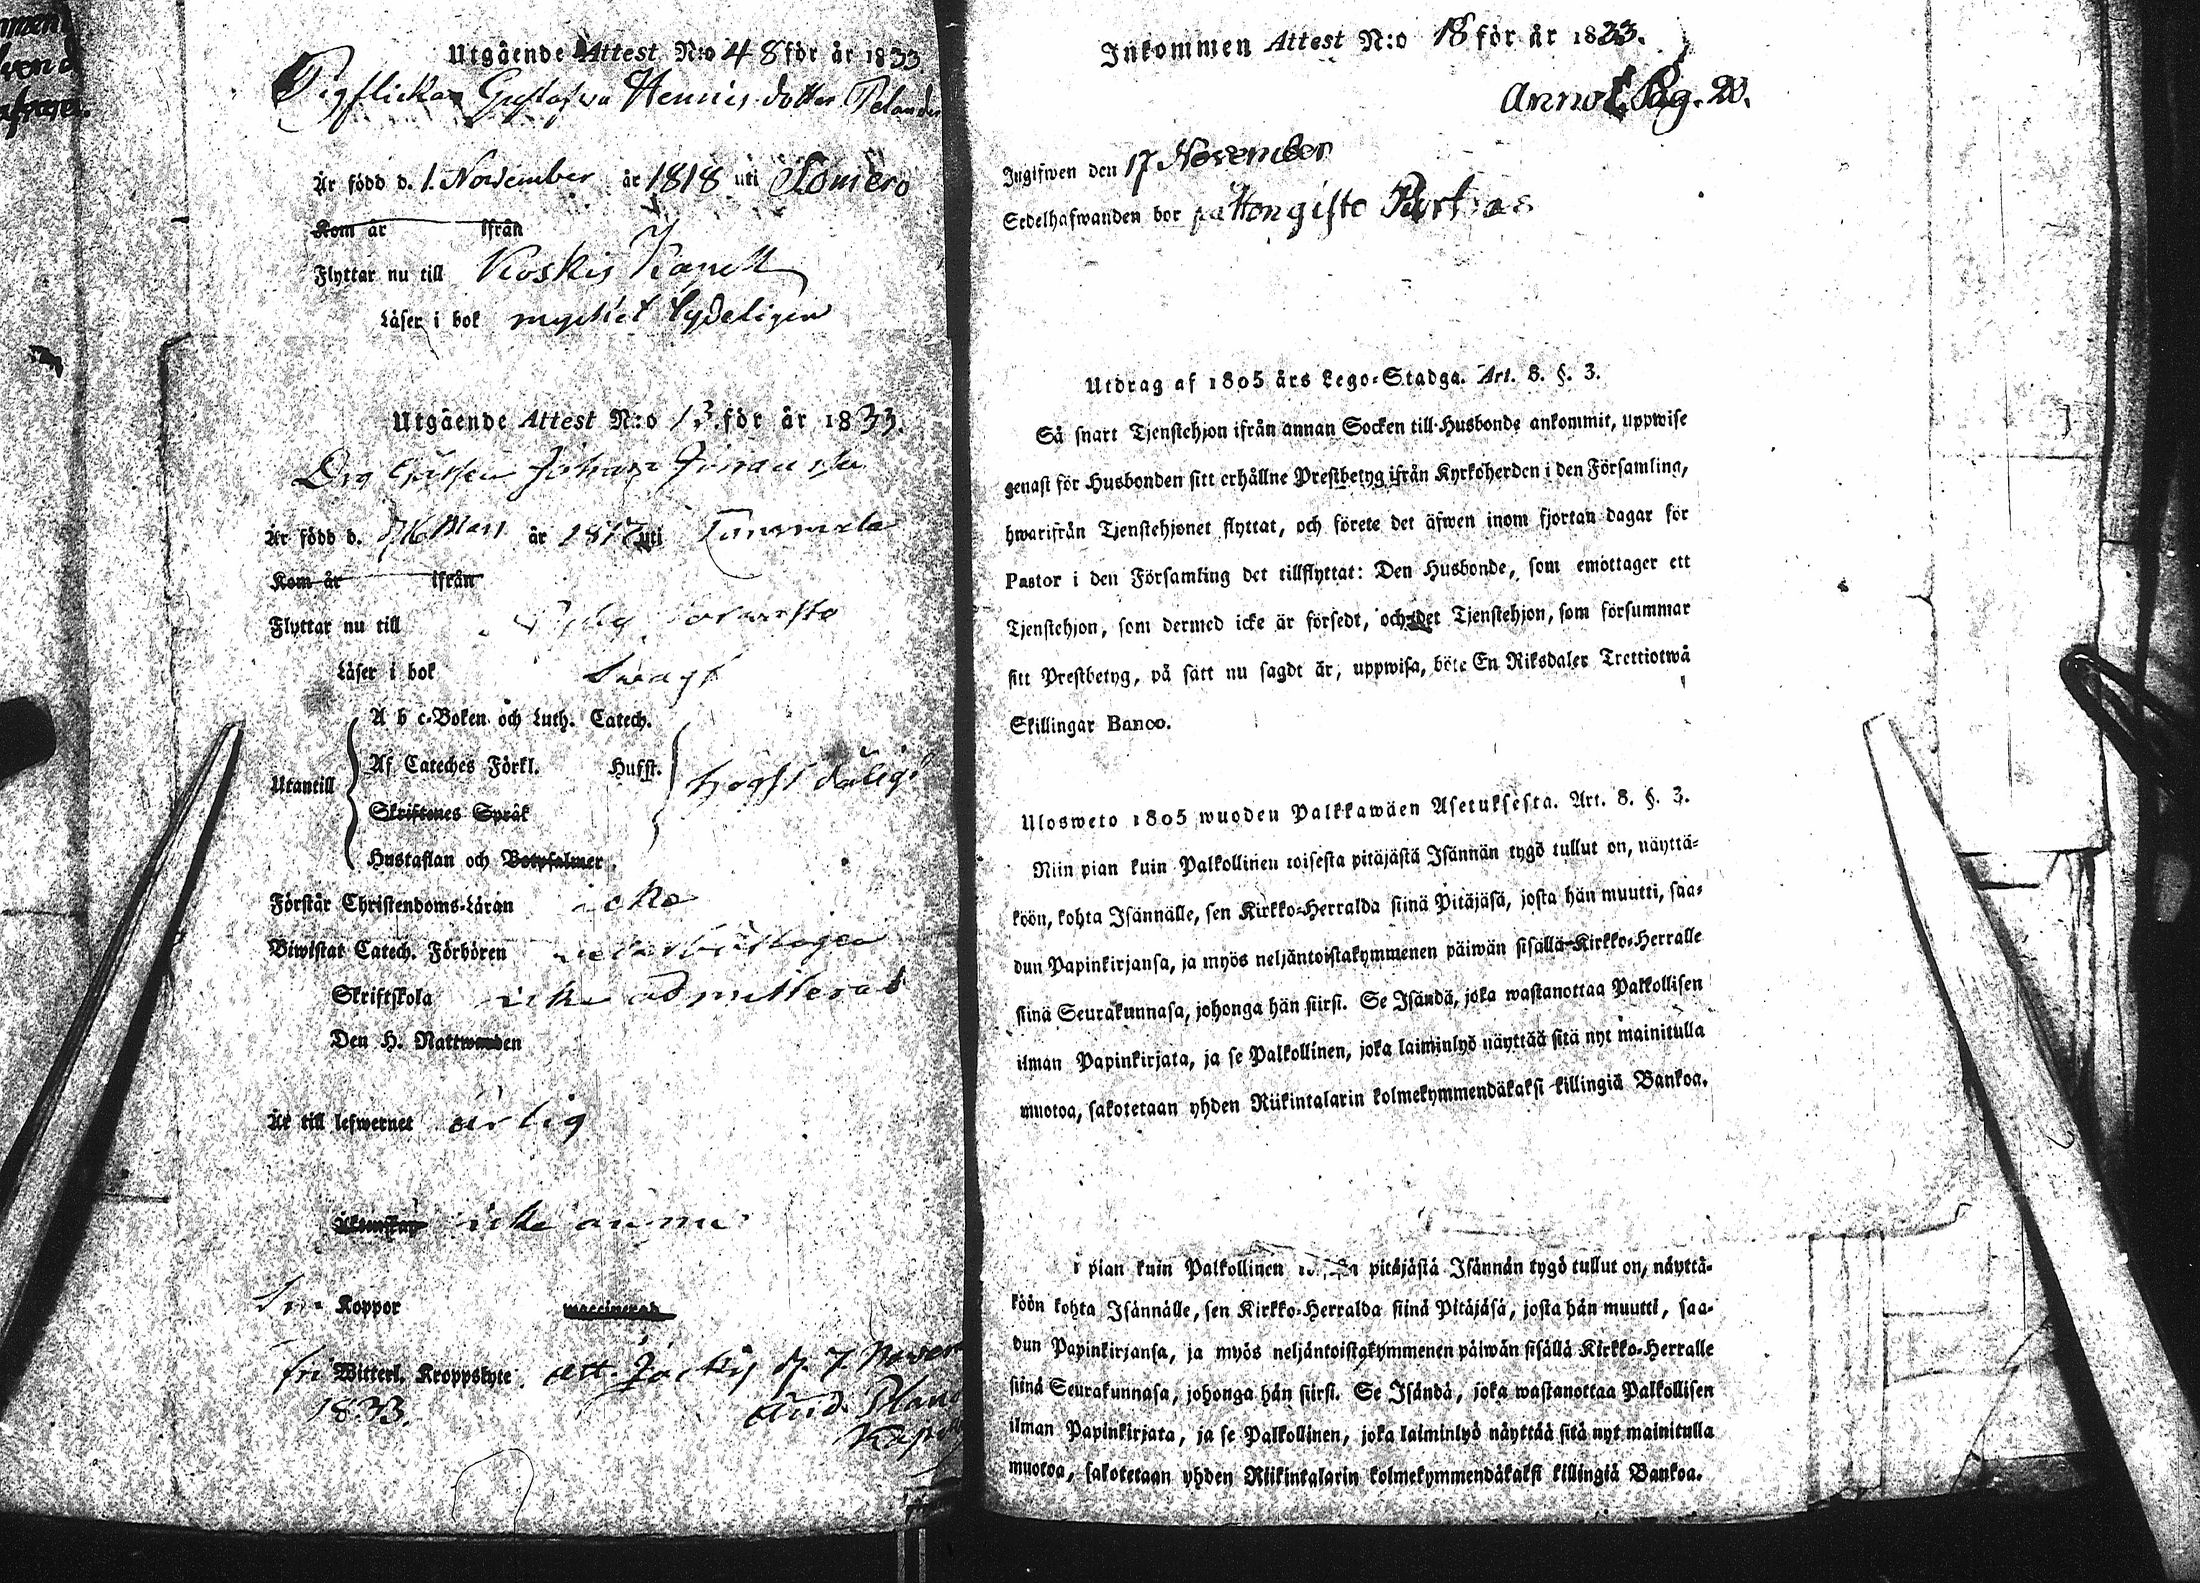 Utgående Attest N:o 48 för år 1833.
Pigflickan Gustafva Hennis dotter
Är född d. 1. November år 1818 uti Somero
Kom år ifrån
Flyttar nu till Koskis Kapell
Läser i bok mycket
Utgående Attest N:o 13 för år 1833.
Drg Johan
Är född d. Mars år 1817 uti
Kom år ifrån
Flyttar nu till
Läser i bok svagt
A b c-Boken och Luth. Catech.
Af Cateches Förkl. Hufst.
Utantill högst dåligt
Skriftenes Språk
Hustaflan och Botpsalmer.
Förstår Christendoms-Läran icke
Biwistat Catech. Förhören
Skriftskola icke admitterad
Den H. Nattwarden
Är till lefwernet ärlig
Äktenskap icke ännu
Koppor waccinerad
fri Witterl. Kroppslyte att. Jockis d. 7. Novem
1833.
And.
Inkommen Attest N:o 18 för år 1833.
Annot. Pag. 20.
Ingifwen den 17 November
Sedelhafwanden bor på Hongisto
Utdrag af 1805 års Lego-Stadga. Art. 8. §. 3.
Så snart Tjenstehjon ifrån annan Socken till Husbonde ankommit, uppwise
genast för Husbonden sitt erhållne Prestbetyg ifrån Kyrkoherden i den Församling,
hwarifrån Tjenstehjonet flyttat, och förete det äfwen inom fjortan dagar för
Pastor i den Församling det tillflyttat: Den Husbonde, som emottager ett
Tjenstehjon, som dermed icke är försedt, och det Tjenstehjon, som försummar
sitt Prestbetyg, på sätt nu sagdt är, uppwisa, böte En Riksdaler Trettiotwå
Skillingar Banco.
Ulosweto 1805 wuoden Palkkawäen Asetuksesta. Art. 8. §. 3.
Niin pian kuin Palkollinen toisesta pitäjästä Isännän tygö tullut on, näyttä-
köön, kohta Isännälle, sen Kirkko-Herralda siinä Pitäjäsä, josta hän muutti, saa-
dun Papinkirjansa, ja myös neljäntoistakymmenen päiwän sisällä Kirkko-Herralle
siinä Seurakunnasa, johonga hän siirsi. Se Isändä, joka wastanottaa Palkollisen
ilman Papinkirjata, ja se Palkollinen, joka laiminlyö näyttää sitä nyt mainitulla
muotoa, sakotetaan yhden Riikintalarin kolmekymmendäkaksi killingiä Bankoa.
pian kuin Palkollinen pitäjästä Isännän tygö tullut on, näyttä-
köön kohta Isännälle, sen Kirkko-Herralda siinä Pitäjäsä, josta hän muutti, saa-
dun Papinkirjansa, ja myös neljäntoistakymmenen päiwän sisällä Kirkko-Herralle
siinä Seurakunnasa, johonga hän siirsi. Se Isändä, joka wastanottaa Palkollisen
ilman Papinkirjata, ja se Palkollinen, joka laiminlyö näyttää sitä nyt mainitulla
muotoa, sakotetaan yhden Riikintalarin kolmekymmendäkaksi killingiä Bankoa.